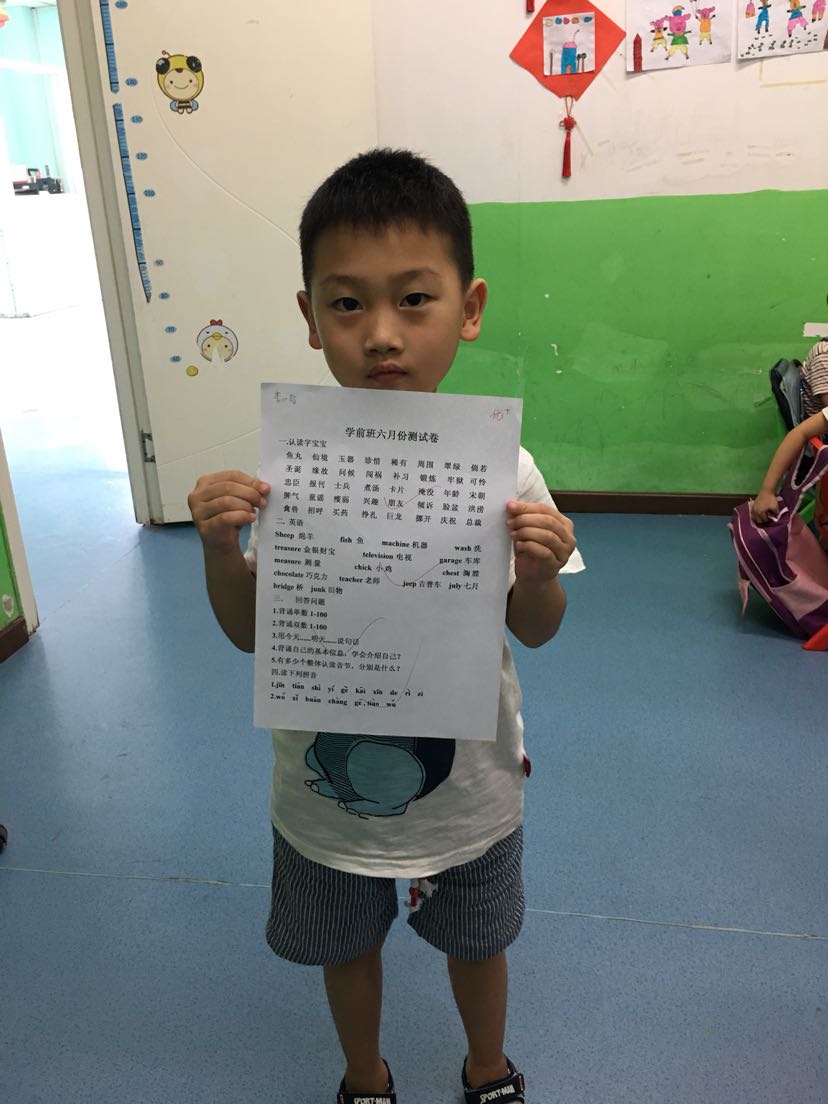 优+
学前班六月份测试卷
一.认读字宝宝
鱼丸 仙境 玉器 珍惜 稀有 周围 翠绿 倘若
圣诞 缘故 问候 闯祸 补习 锻炼 牢狱 可怜
忠臣 报刊 士兵 煮汤 卡片 淹没 年龄 宋朝
脾气 童谣 瘦弱 兴趣 朋友 倾诉 脸盆 洪涝
禽兽 招呼 买药 挣扎 巨龙 挪开 庆祝 总裁
二. 英语
Sheep 绵羊 fish 鱼 machine 机器 wash 洗
treasure 金银财宝 television 电视 garage 车库
measure 测量 chick 小鸡 chest 胸膛
chocolate 巧克力 teacher 老师 jeep 吉普车 july 七月
bridge 桥 junk 旧物
三. 回答问题
1.背诵单数 1-100
2.背诵双数 1-100
3.用今天......明天......说句话
4.背诵自己的基本信息，学会介绍自己？
5.有多少个整体认读音节，分别是什么？
四.读下列拼音
1.jīn tiān shì yí gè kāi xīn de rì zi
2.wǒ xǐ huān chàng gē , tiào wǔ
140
130
120
110
90
80
70
60
SPORT-MAN
SPORT-MAN